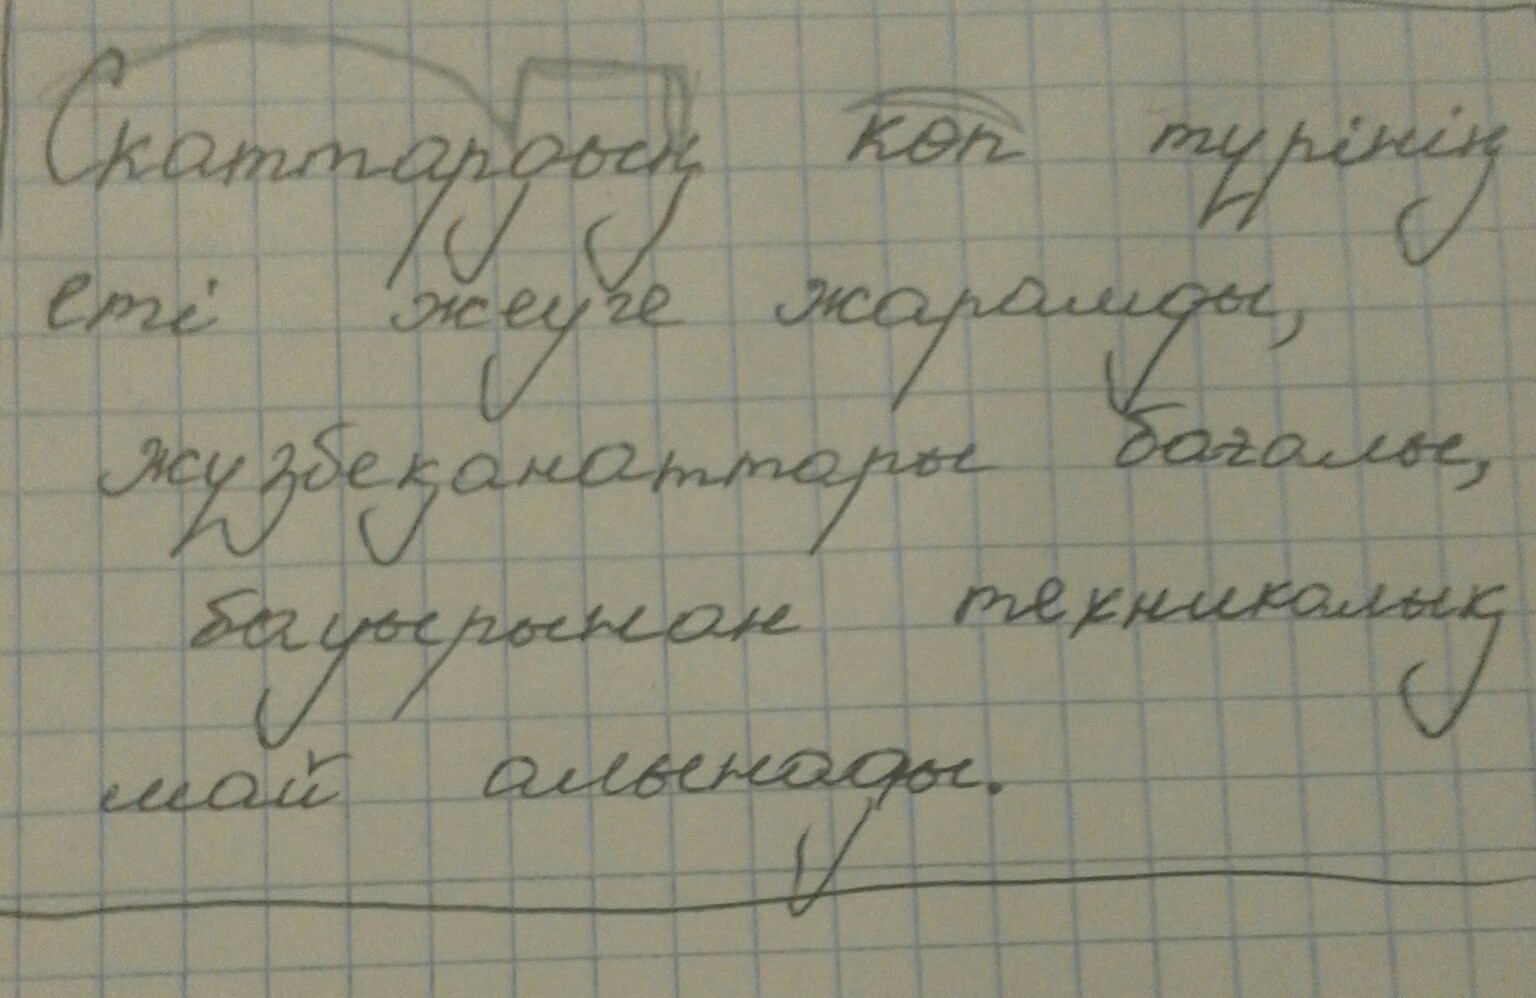 Скаттардың көп түрінің
еті жеуге жарамды,
жүзбеқанаттары бағалы,
бауырынан техникалық
май алынады.